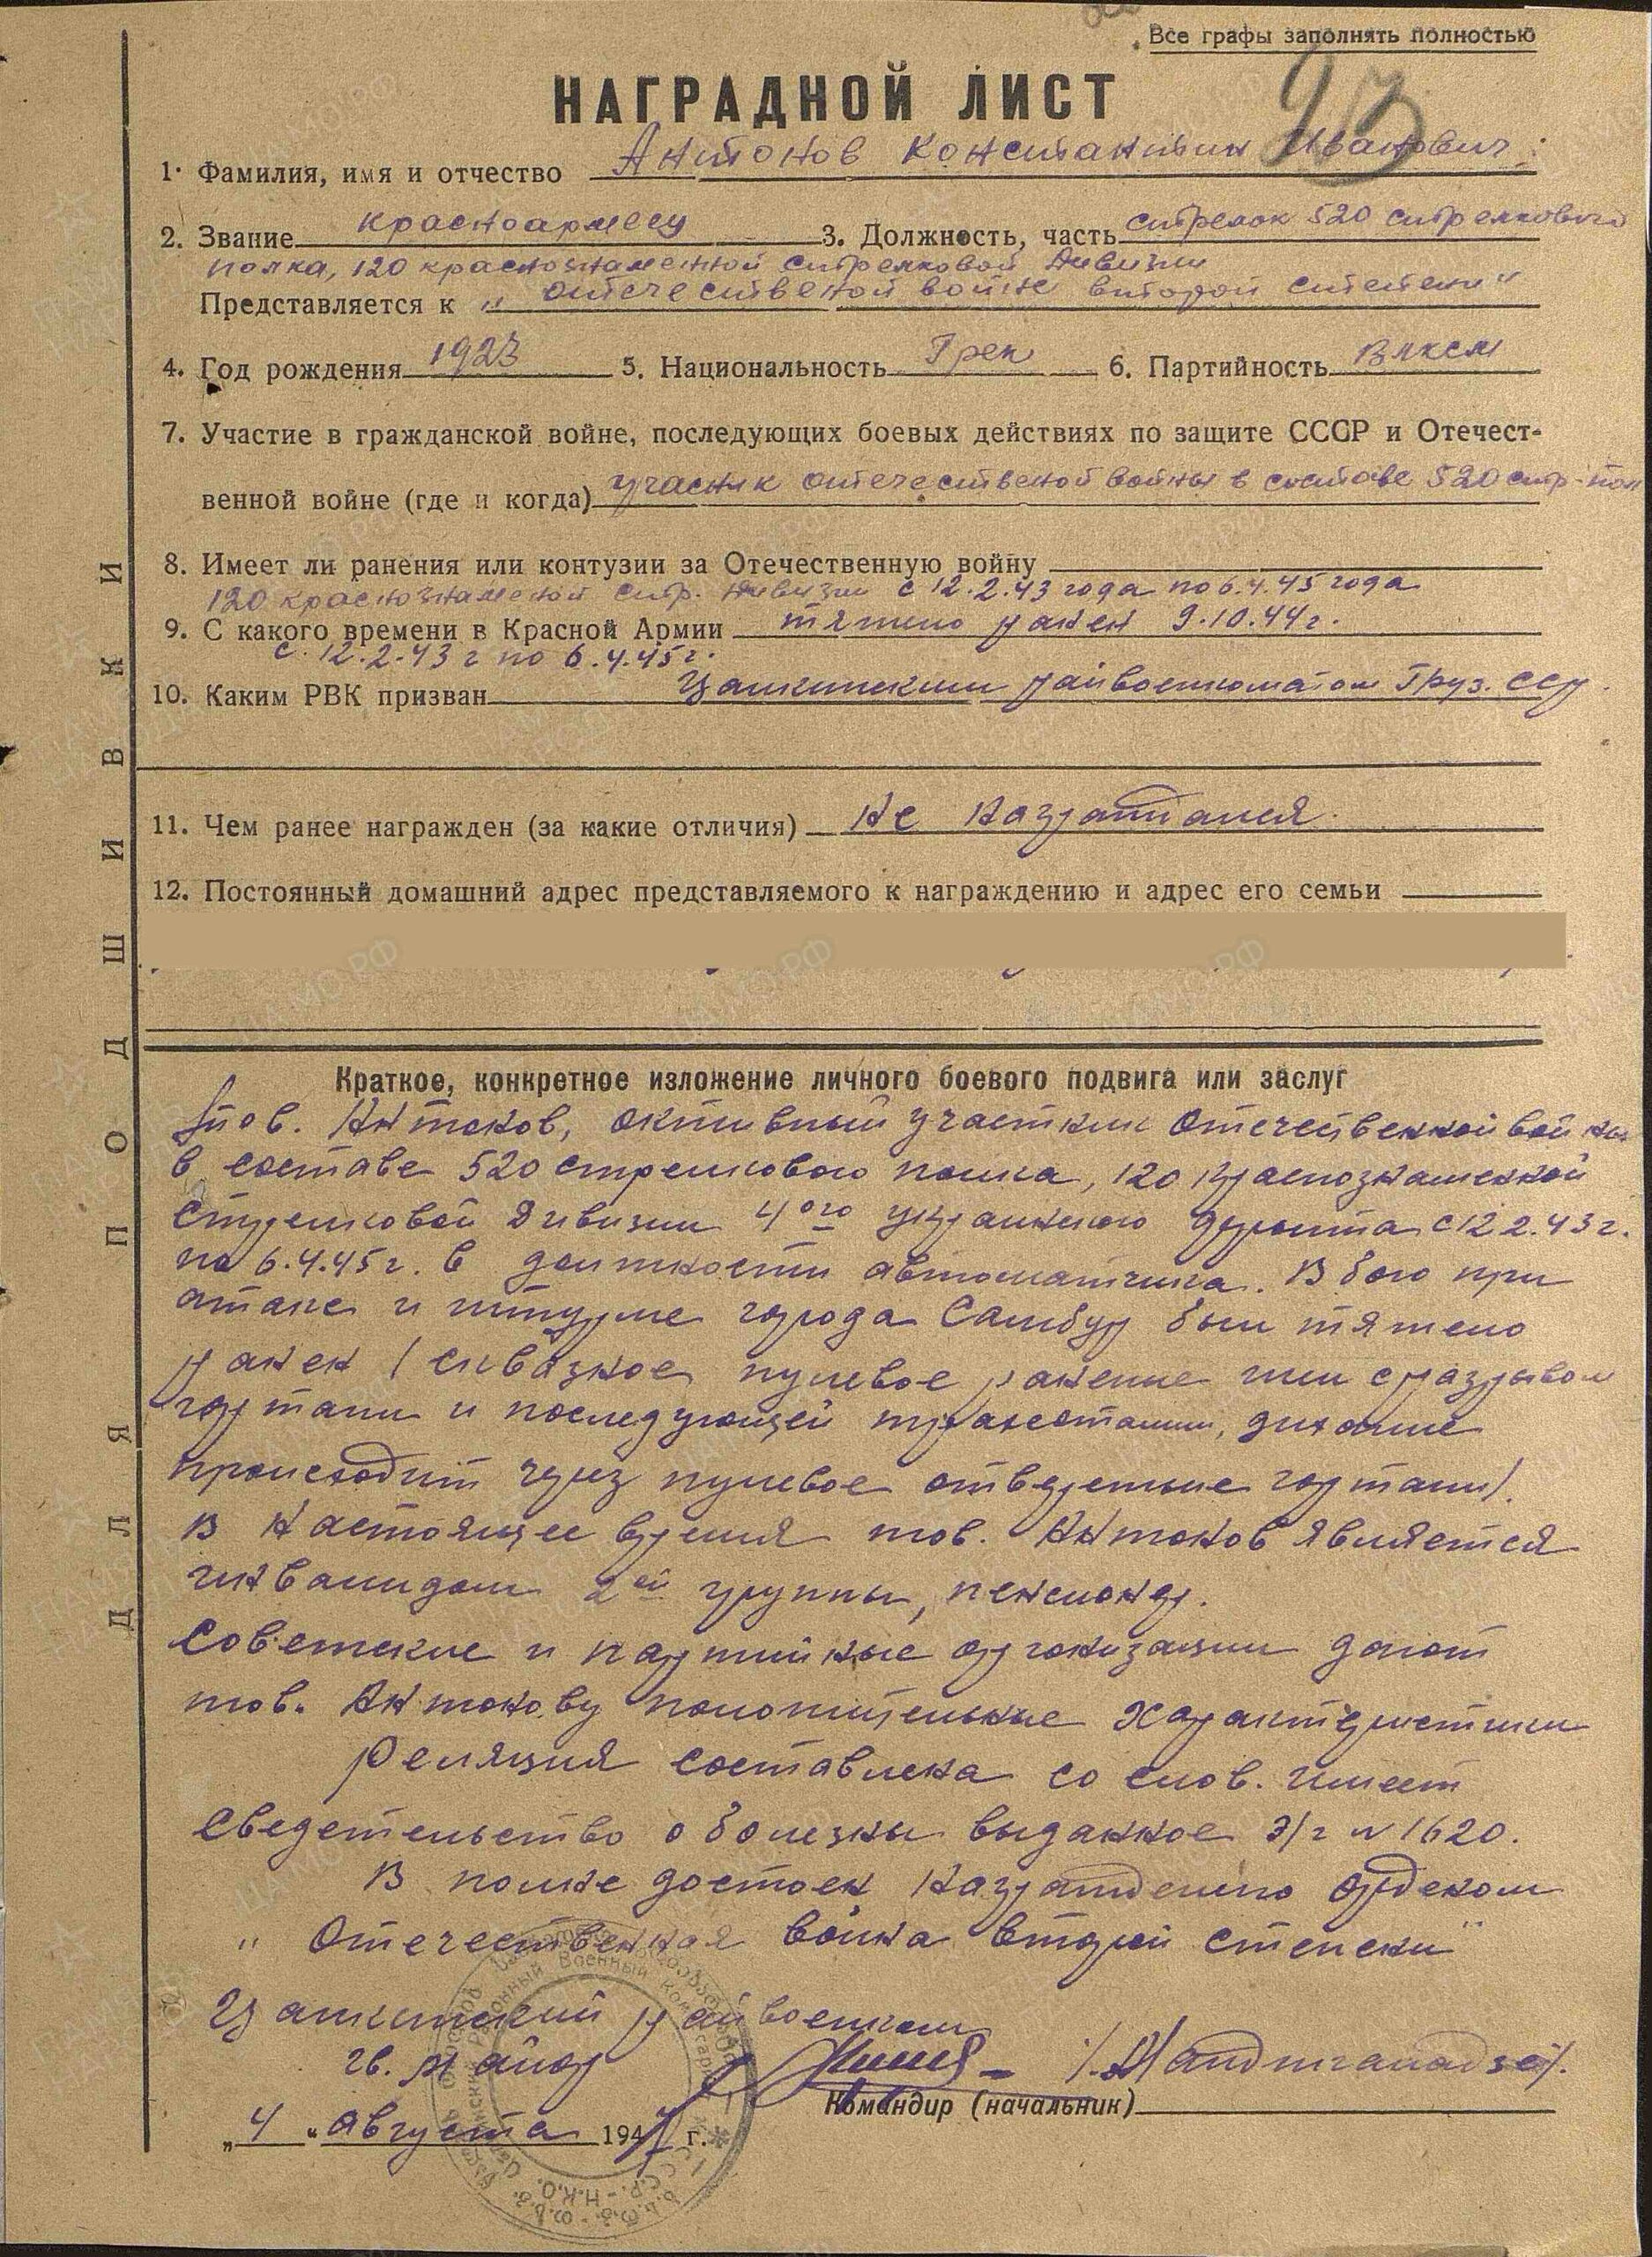 Все графы заполнять полностью
93
НАГРАДНОЙ ЛИСТ
1. Фамилия, имя и отчество Антонов Константин Иванович
2. Звание красноармеец 3. Должность, часть стрелок 520 стрелкового
полка, 120 краснознаменной стрелковой дивизии
Представляется к „отечественой войне второй степени"
4. Год рождения 1923 5. Национальность Грек 6. Партийность Влксм
7. Участие в гражданской войне, последующих боевых действиях по защите СССР и Отечест-
венной войне (где и когда) участник отечественой войны в составе 520 стр-пол
8. Имеет ли ранения или контузии за Отечественную войну
120 краснознаменой стр. дивизии с 12.2.43 года по 6.4.45 года
9. С какого времени в Красной Армии тяжело ранен 9.10.44 г.
с 12.2.43 г по 6.4.45 г.
10. Каким РВК призван Цалкинским райвоенкоматом Груз. ССР
11. Чем ранее награжден (за какие отличия) Не награждался.
12. Постоянный домашний адрес представляемого к награждению и адрес его семьи
Краткое, конкретное изложение личного боевого подвига или заслуг
тов. Антонов, активный участник Отечественной войны
в составе 520 стрелкового полка, 120 краснознаменной
стрелковой дивизии 4ого украинского фронта с 12.2.43 г.
по 6.4.45 г. в должности автоматчика. В бою при
атаке и штурме города Самбур был тяжело
ранен (сквозное пулевое ранение шеи с разрывом
гортани и последующей трахеотомии, дихание
происходит через пулевое отверстие гортани).
В настоящее время тов. Антонов является
инвалидом 2ой группы, пенсионер.
Советские и партийные организации дают
тов. Антонову положительные характеристики
Реляция составлена со слов. Имеет
сведетельство о болезни выданное Э/г № 1620.
В полне достоен награждению орденом
„Отечественная война второй степени"
Цалкинский райвоенком
гв. майор /Манджгаладзе/.
Командир (начальник)
„4" Августа 1947 г.
ДЛЯ ПОДШИВКИ